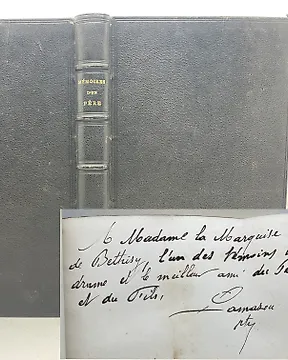 MÉMOIRES
D'UN
PÈRE
A Madame la Marquise
de Béthisy, l'un des témoins
drame et le meilleur ami du
et du Fils,